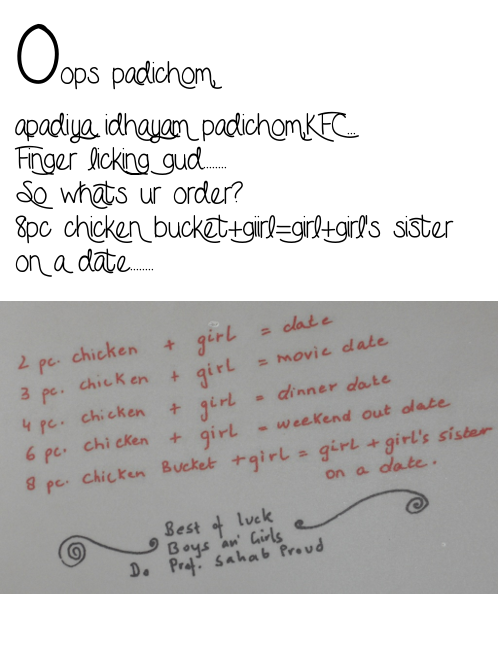 Oops padichom,
apadiya idhayam padichom,KFC...
Finger licking gud.......
So whats ur order?
8pc chicken bucket+giirl=girl+girl's sister
on a date........
2 pc. chicken + girl = date
3 pc. chicken + girl = movie date
4 pc. chicken + girl = dinner date
6 pc. chicken + girl = weekend out date
8 pc. chicken Bucket +girl = girl +girl's sister
on a date.
Best of luck
Boys an' Girls
Do Prof. Sahab Proud